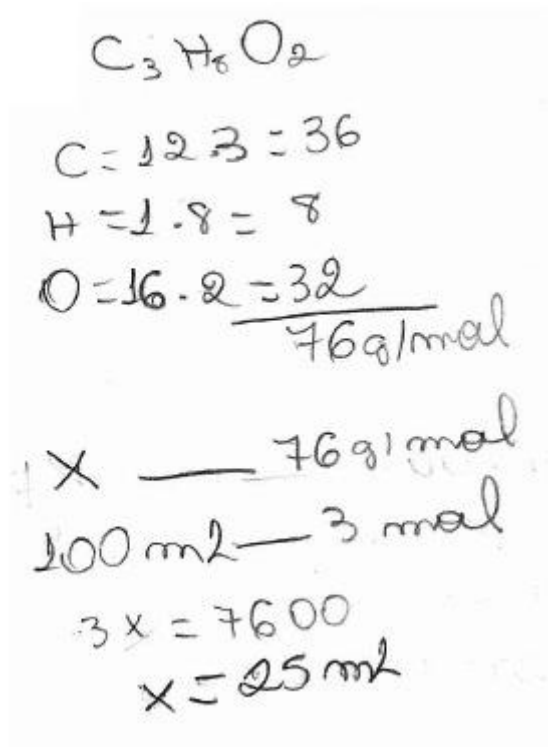 C3 H8 O2
C = 12.3 = 36
H = 1.8 = 8
O = 16.2 = 32
76g/mol
X — 76g/mol
100 ml — 3 mol
3x = 7600
x = 25 ml